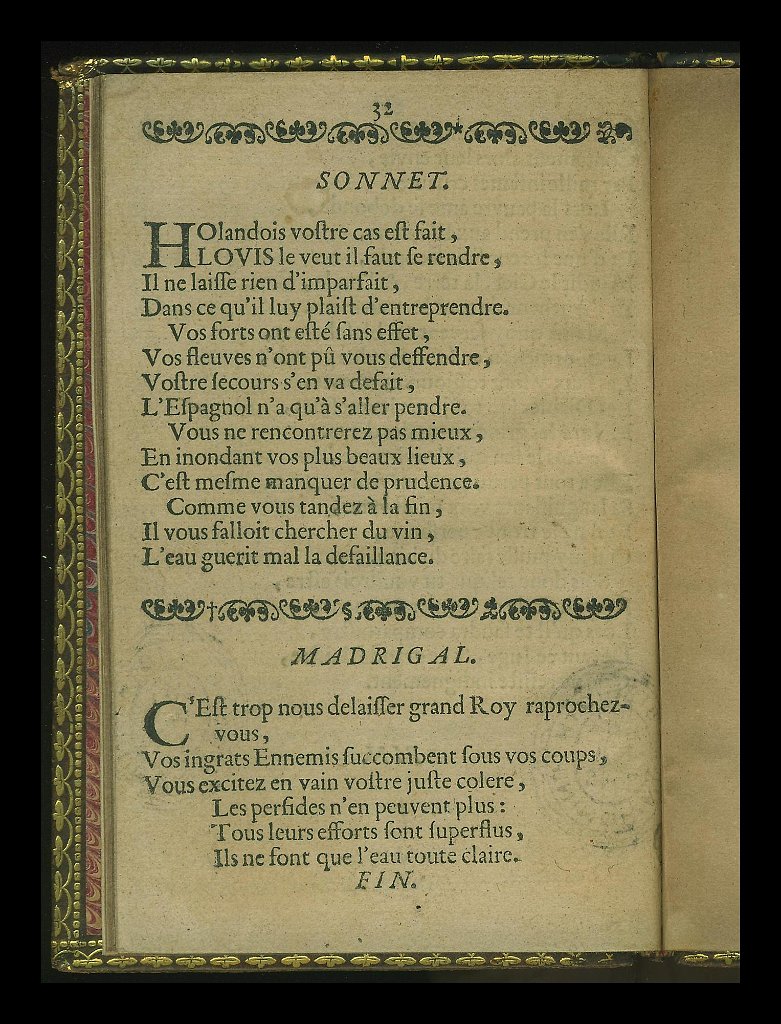 32
SONNET.
HOlandois voſtre cas eſt fait,
LOVIS le veut il faut ſe rendre,
Il ne laiſſe rien d'imparfait,
Dans ce qu'il luy plaiſt d'entreprendre.
Vos forts ont eſté ſans effet,
Vos fleuves n'ont pû vous deffendre,
Voſtre ſecours s'en va defait,
L'Eſpagnol n'a qu'à s'aller pendre.
Vous ne rencontrerez pas mieux,
En inondant vos plus beaux lieux,
C'eſt meſme manquer de prudence.
Comme vous tandez à la fin,
Il vous falloit chercher du vin,
L'eau guerit mal la defaillance.
MADRIGAL.
C'Eſt trop nous delaiſſer grand Roy raprochez-
vous,
Vos ingrats Ennemis ſuccombent ſous vos coups,
Vous excitez en vain voſtre juſte colere,
Les perfides n'en peuvent plus:
Tous leurs efforts ſont ſuperflus,
Ils ne font que l'eau toute claire.
FIN.